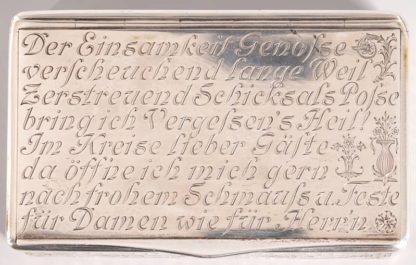 Der Einsamkeit Genosse
verscheuchend lange Weil
Zerstreuend Schicksals Posse
bring ich Vergessen's Heil!
Im Kreise lieber Gäste
da öffne ich mich gern
nach frohem Schmauss u. Feste
für Damen wie für Herrn